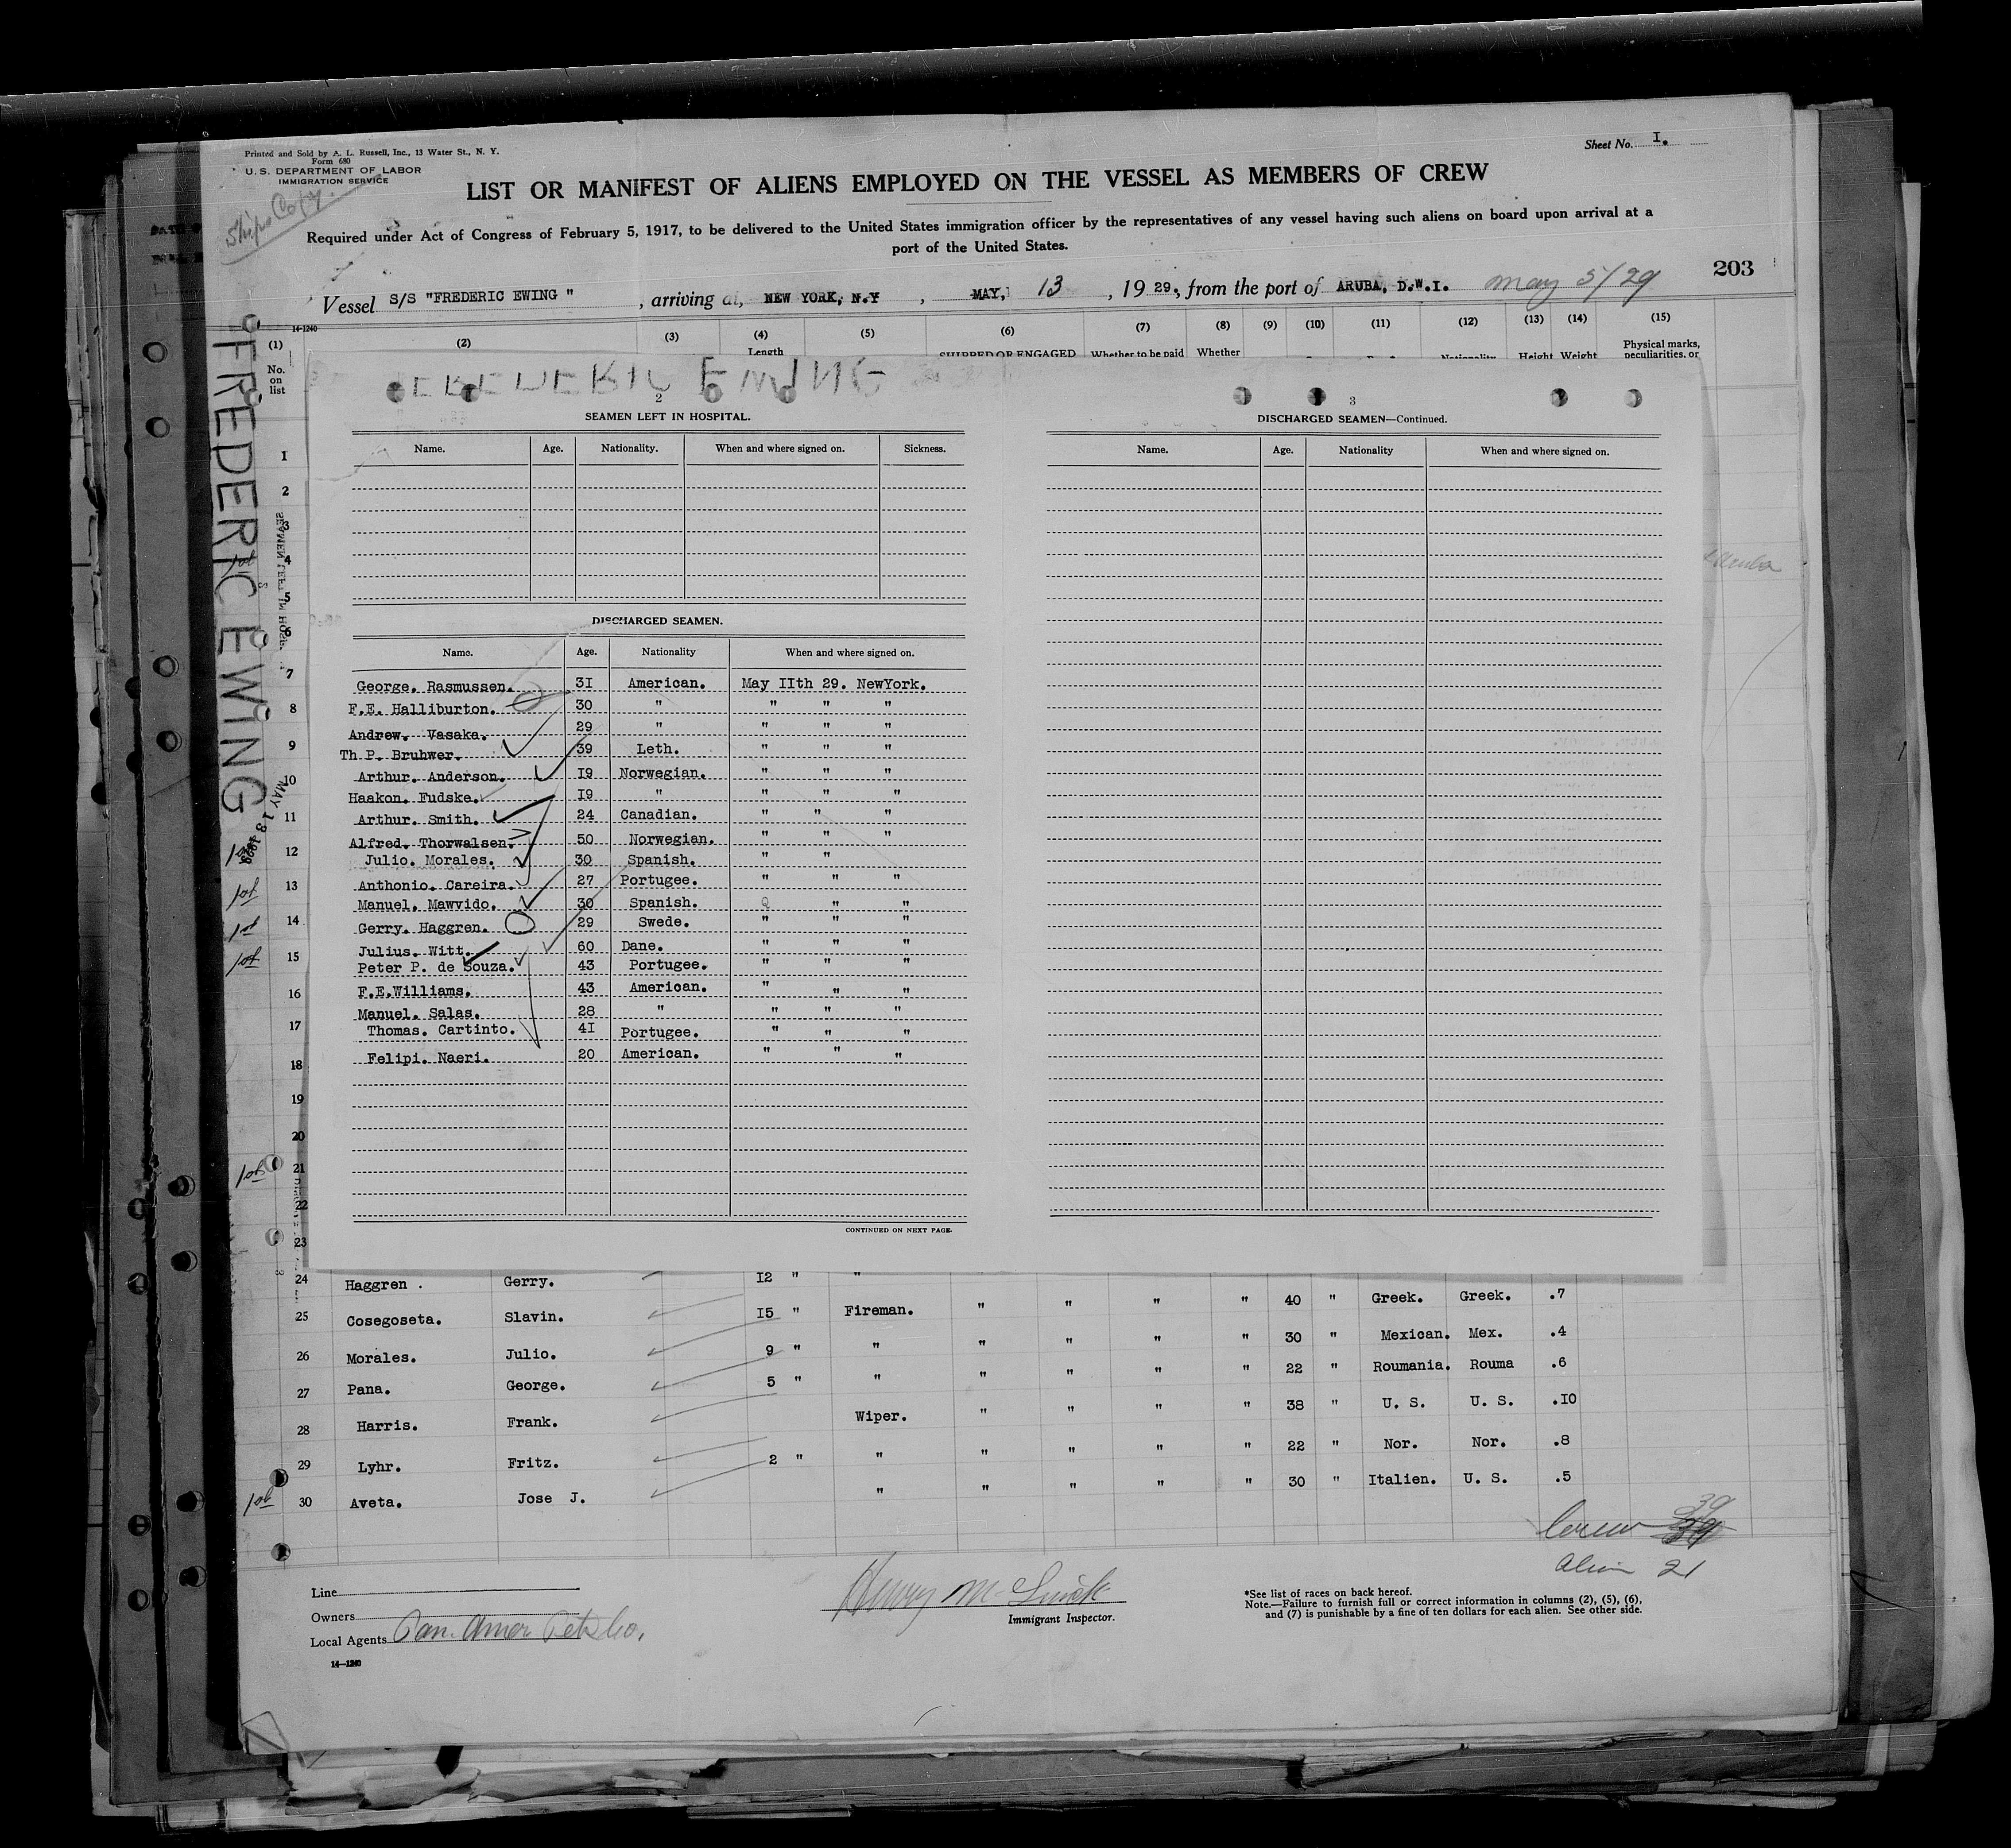 Printed and Sold by A. L. Russell, Inc., 13 Water St., N. Y.
Form 680
U. S. DEPARTMENT OF LABOR
IMMIGRATION SERVICE
Ships Copy.
Sheet No. I.
LIST OR MANIFEST OF ALIENS EMPLOYED ON THE VESSEL AS MEMBERS OF CREW
Required under Act of Congress of February 5, 1917, to be delivered to the United States immigration officer by the representatives of any vessel having such aliens on board upon arrival at a
port of the United States.
203
Vessel S/S "FREDERIC EWING ", arriving at, NEW YORK, N.Y, MAY, 13, 19 29., from the port of ARUBA, D.W.I. may 5/29
14-1240
(1) (2) (3) (4) (5) (6) (7) (8) (9) (10) (11) (12) (13) (14) (15)
No. on list
Length
SHIPPED OR ENGAGED
Whether to be paid
Whether
Nationality
Height
Weight
Physical marks, peculiarities, or
FREDERIC EWING
FREDERIC EWING
MAY 13 1929
2
SEAMEN LEFT IN HOSPITAL.
Name. Age. Nationality. When and where signed on. Sickness.
DISCHARGED SEAMEN.
Name. Age. Nationality When and where signed on.
George. Rasmussen. 3I American. May IIth 29. NewYork.
F.E. Halliburton. 30 " " " "
Andrew. Vasaka. 29 " " " "
Th P. Bruhwer. 39 Leth. " " "
Arthur. Anderson. I9 Norwegian. " " "
Haakon. Fudske. I9 " " " "
Arthur. Smith. 24 Canadian. " " "
Alfred. Thorwalsen. 50 Norwegian. " " "
Julio. Morales. 30 Spanish. " "
Anthonio. Careira. 27 Portugee. " " "
Manuel. Mawvido. 30 Spanish. Q " "
Gerry. Haggren. 29 Swede. " " "
Julius. Witt. 60 Dane. " " "
Peter P. de Souza. 43 Portugee. " " "
F.E.Williams. 43 American. " " "
Manuel. Salas. 28 " " " "
Thomas. Cartinto. 4I Portugee. " " "
Felipi. Naeri. 20 American. " " "
CONTINUED ON NEXT PAGE.
3
DISCHARGED SEAMEN—Continued.
Name. Age. Nationality When and where signed on.
1
2
3
4
5
6
7
8
9
10
11
12
13
14
15
16
17
18
19
20
21
22
23
1st
1st
1st
1st
1st
24 Haggren . Gerry. I2 " "
25 Cosegoseta. Slavin. I5 " Fireman. " " " " 40 " Greek. Greek. .7
26 Morales. Julio. 9 " " " " " " 30 " Mexican. Mex. .4
27 Pana. George. 5 " " " " " " 22 " Roumania. Rouma .6
28 Harris. Frank. Wiper. " " " " 38 " U. S. U. S. .I0
29 Lyhr. Fritz. 2 " " " " " " 22 " Nor. Nor. .8
1st 30 Aveta. Jose J. " " " " " 30 " Italien. U. S. .5
Crew 39
Alien 21
Line
Owners
Local Agents Pan. Amer Pet. Co.
14—1240
Immigrant Inspector.
*See list of races on back hereof.
Note.—Failure to furnish full or correct information in columns (2), (5), (6),
and (7) is punishable by a fine of ten dollars for each alien. See other side.